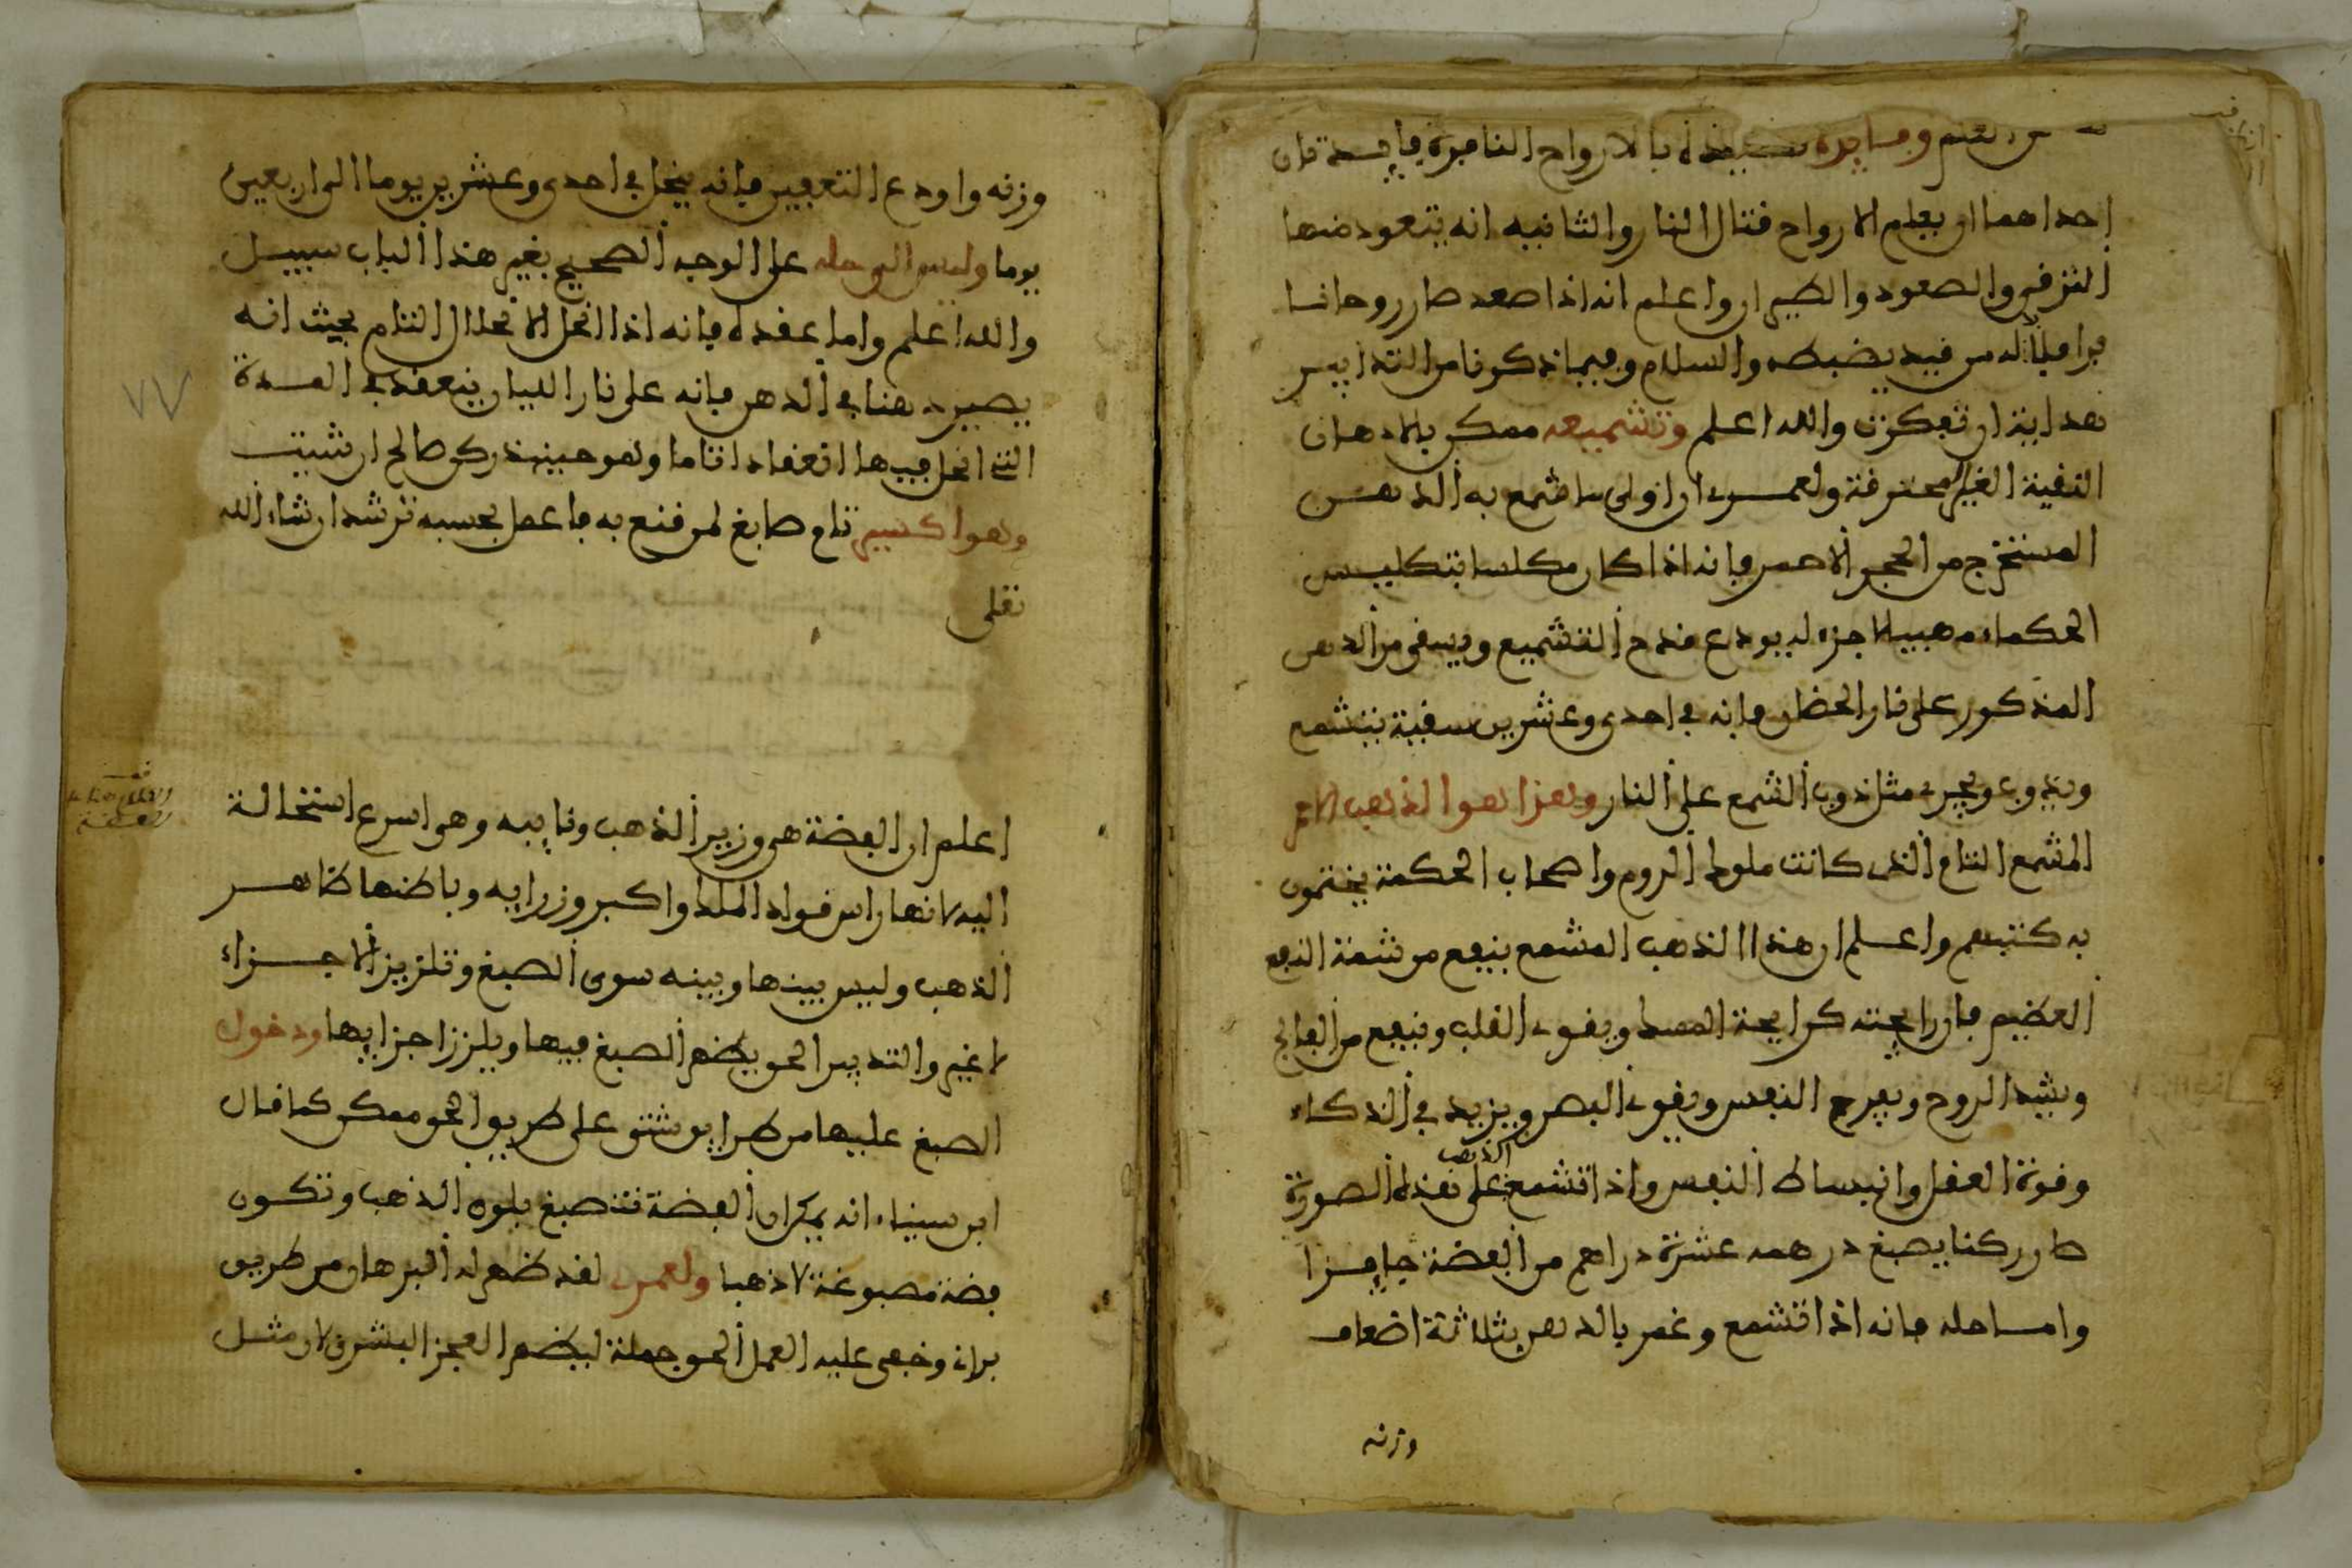 العلم وفايدة تصعيده بالارواح النافرة فايدتان
إحداهما ان يعلم الارواح قتال النار والثانيه انه يتعود منها
التزفر والصعود والطيران واعلم انه اذا صعد صار روحانيا
فرارا فلا بد له من قيد يضبطه والسلام وفيما ذكرنا من التدابير
هداية ان تفكرت والله اعلم وتشميعه ممكن بالادهان
النقية الغير محترقة ولعمرى ان اولى ما شمع به الدهن
المستخرج من الحجر الاحمر فانه اذا كان مكلسا بتكليس
الحكماء مهبيا الاجزاء يودع قدح التشميع ويسقى من الدهن
المذكور على نار الحضان فانه في احدى وعشرين سقية يتشمع
ويذوب ويجرى مثل ذوب الشمع على النار وهذا هو الذهب الاحمر
المشمع التام الذى كانت ملوك الروم واصحاب الحكمة يختمون
به كتبهم واعلم ان هذا الذهب المشمع ينفع من شمه النفع
العظيم فان رايحته كرايحة المسك ويقوى القلب وينفع من الفالج
ويشد الروح ويفرح النفس ويقوى البصر ويزيد في الذكاء
وقوة العقل وانبساط النفس واذا تشمع الذهب على هذه الصورة
صار ركنا يصبغ درهمه عشرة دراهم من الفضة جايزا
واما حله فانه اذا تشمع وغمر بالدهن بثلاثة اضعاف
وزنه
وزنه واودع التعفين فانه ينحل في احدى وعشرين يوما الى اربعين
يوما وليس الى حله على الوجه الصحيح بغير هذا الباب سبيل
والله اعلم واما عقده فانه اذا انحل الانحلال التام بحيث انه
يصير دهنا في الدهن فانه على نار الليان ينعقد في المدة
التى انحل فيها انعقادا تاما وهو حينئذ ركن صالح ان شيت
وهو اكسير تام صابغ لمن قنع به فاعمل بحسبه ترشد ان شاء الله
تعلى
٧٧
اعلم ان الفضة هى وزير الذهب ونايبه وهى اسرع استحالة
اليه لانها راس قواد الملك واكبر وزرايه وباطنها ظاهر
الذهب وليس بينها وبينه سوى الصبغ وتلزيز الاجزاء
لا غير والتدبير الحق يظهر الصبغ فيها ويلزز اجزايها ودخول
الصبغ عليها من طرايق شتى على طريق الحق ممكن كما قال
ابن سيناء انه يمكن ان الفضة تنصبغ بلون الذهب وتكون
فضة مصبوغة لا ذهبا ولعمرى لقد ظهر له البرهان من طريق
برانى وخفى عليه العمل الحق جملة ليظهر العجز البشرى لان مثل